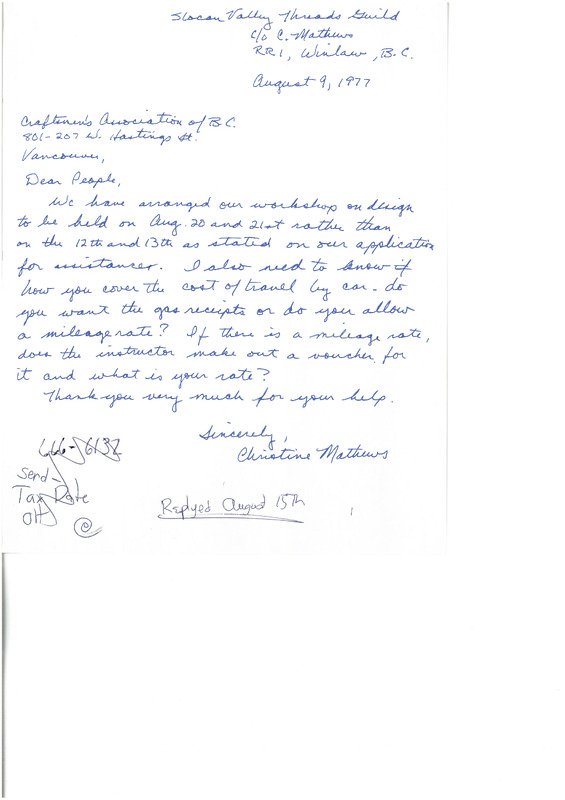 Slocan Valley Threads Guild
c/o C. Mathews
RR1, Winlaw, B.C.
August 9, 1977
Craftsmen's Association of B.C.
801-207 W. Hastings St.
Vancouver,
Dear People,
We have arranged our workshop on design
to be held on Aug. 20 and 21st rather than
on the 12th and 13th as stated on our application
for assistance. I also need to know if
how you cover the cost of travel by car - do
you want the gas receipts or do you allow
a mileage rate? If there is a mileage rate,
does the instructor make out a voucher for
it and what is your rate?
Thank you very much for your help.
Sincerely,
Christine Mathews
666-6132
Send -
Tax Rate
Replyed August 15th